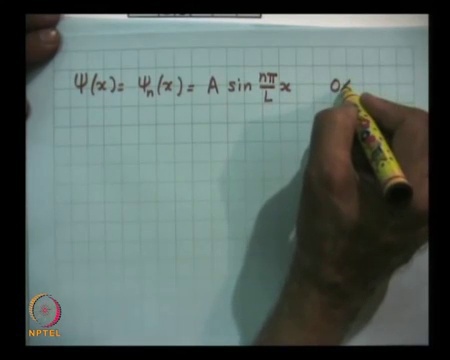 Ψ(x) = Ψₙ(x) = A sin nπ/L x 0<
NPTEL